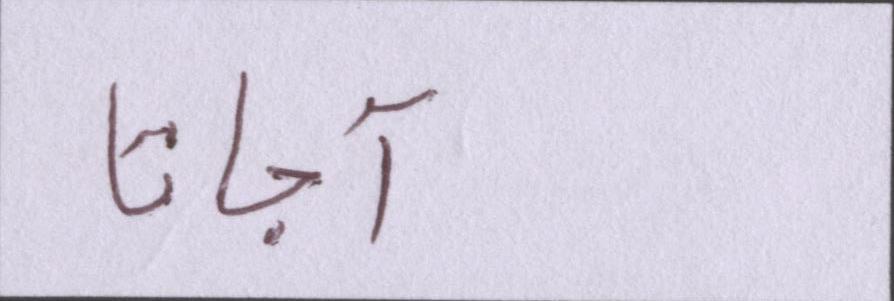 آجاتا